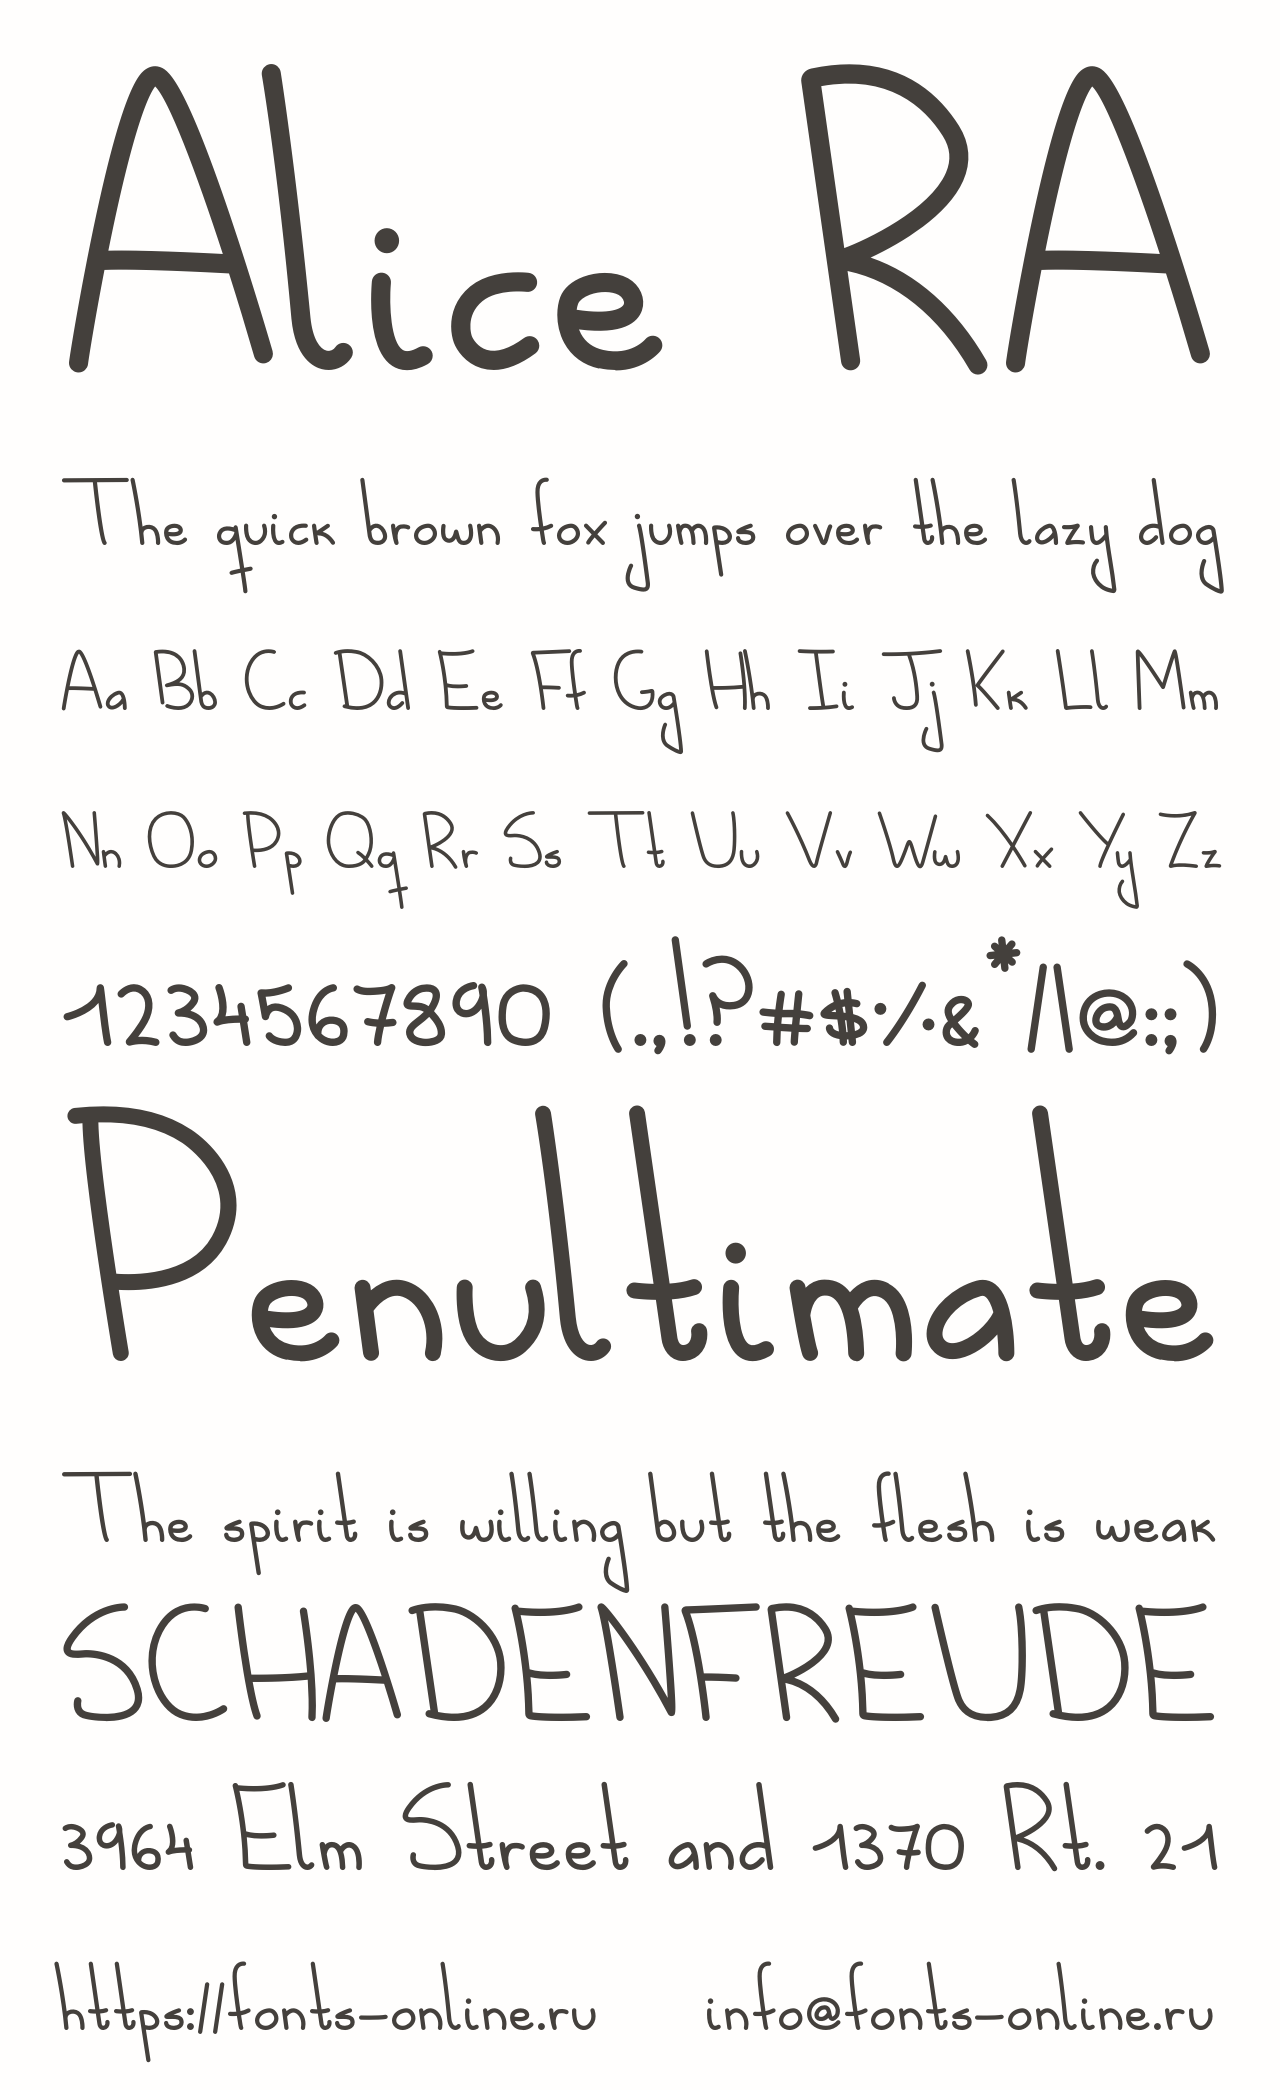 Alice RA
The quick brown fox jumps over the lazy dog
Aa Bb Cc Dd Ee Ff Gg Hh Ii Jj Kk Ll Mm
Nn Oo Pp Qq Rr Ss Tt Uu Vv Ww Xx Yy Zz
1234567890 (.,!?#$%&*/\@:;)
Penultimate
The spirit is willing but the flesh is weak
SCHADENFREUDE
3964 Elm Street and 1370 Rt. 21
https://fonts-online.ru info@fonts-online.ru